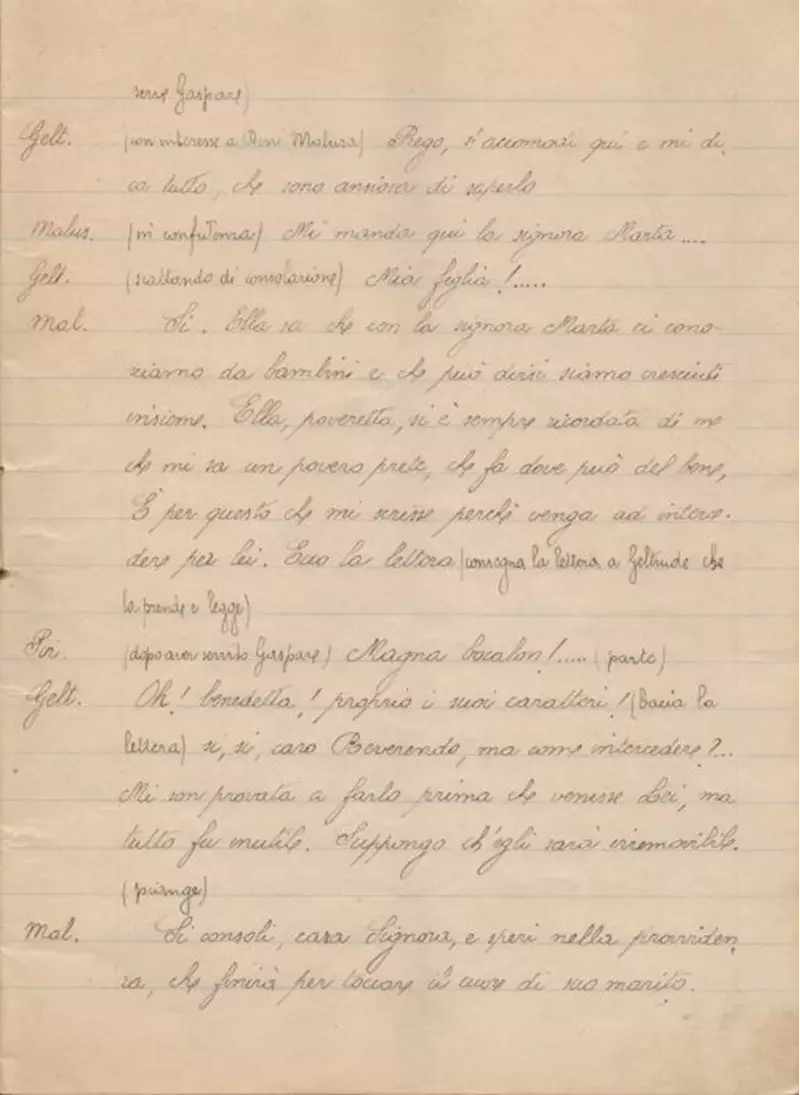 serve Gaspare)
Gelt. (con interesse a Don Malusa) Prego, s'accomodi qui e mi di-
ca tutto, che sono ansiosa di saperlo
Malus. (in confidenza) Mi manda qui la signora Marta....
Gelt. (saltando di consolazione) Mia figlia!.....
Mal. Si. Ella sa che con la signora Marta ci cono-
ziamo da bambini e che può dirsi siamo cresciuti
insieme. Ella, poveretta, si è sempre ricordata di me
che mi sa un povero prete, che fa dove può del bene,
È per questo che mi scrisse perchè venga ad interce-
dere per lei. Ecco la lettera (consegna la lettera a Geltrude che
la prende e legge)
Pir. (dopo aver servito Gaspare) Magna bocalon!..... (parte)
Gelt. Oh! benedetta! proprio i suoi caratteri! (bacia la
lettera) si, si, caro Reverendo, ma come intercedere?...
Mi son provata a farlo prima che venisse Lei, ma
tutto fu inutile. Suppongo ch'egli sarà irremovibile.
(piange)
Mal. Si consoli, cara Signora, e speri nella providen-
za, che finirà per toccare il cuore di suo marito.